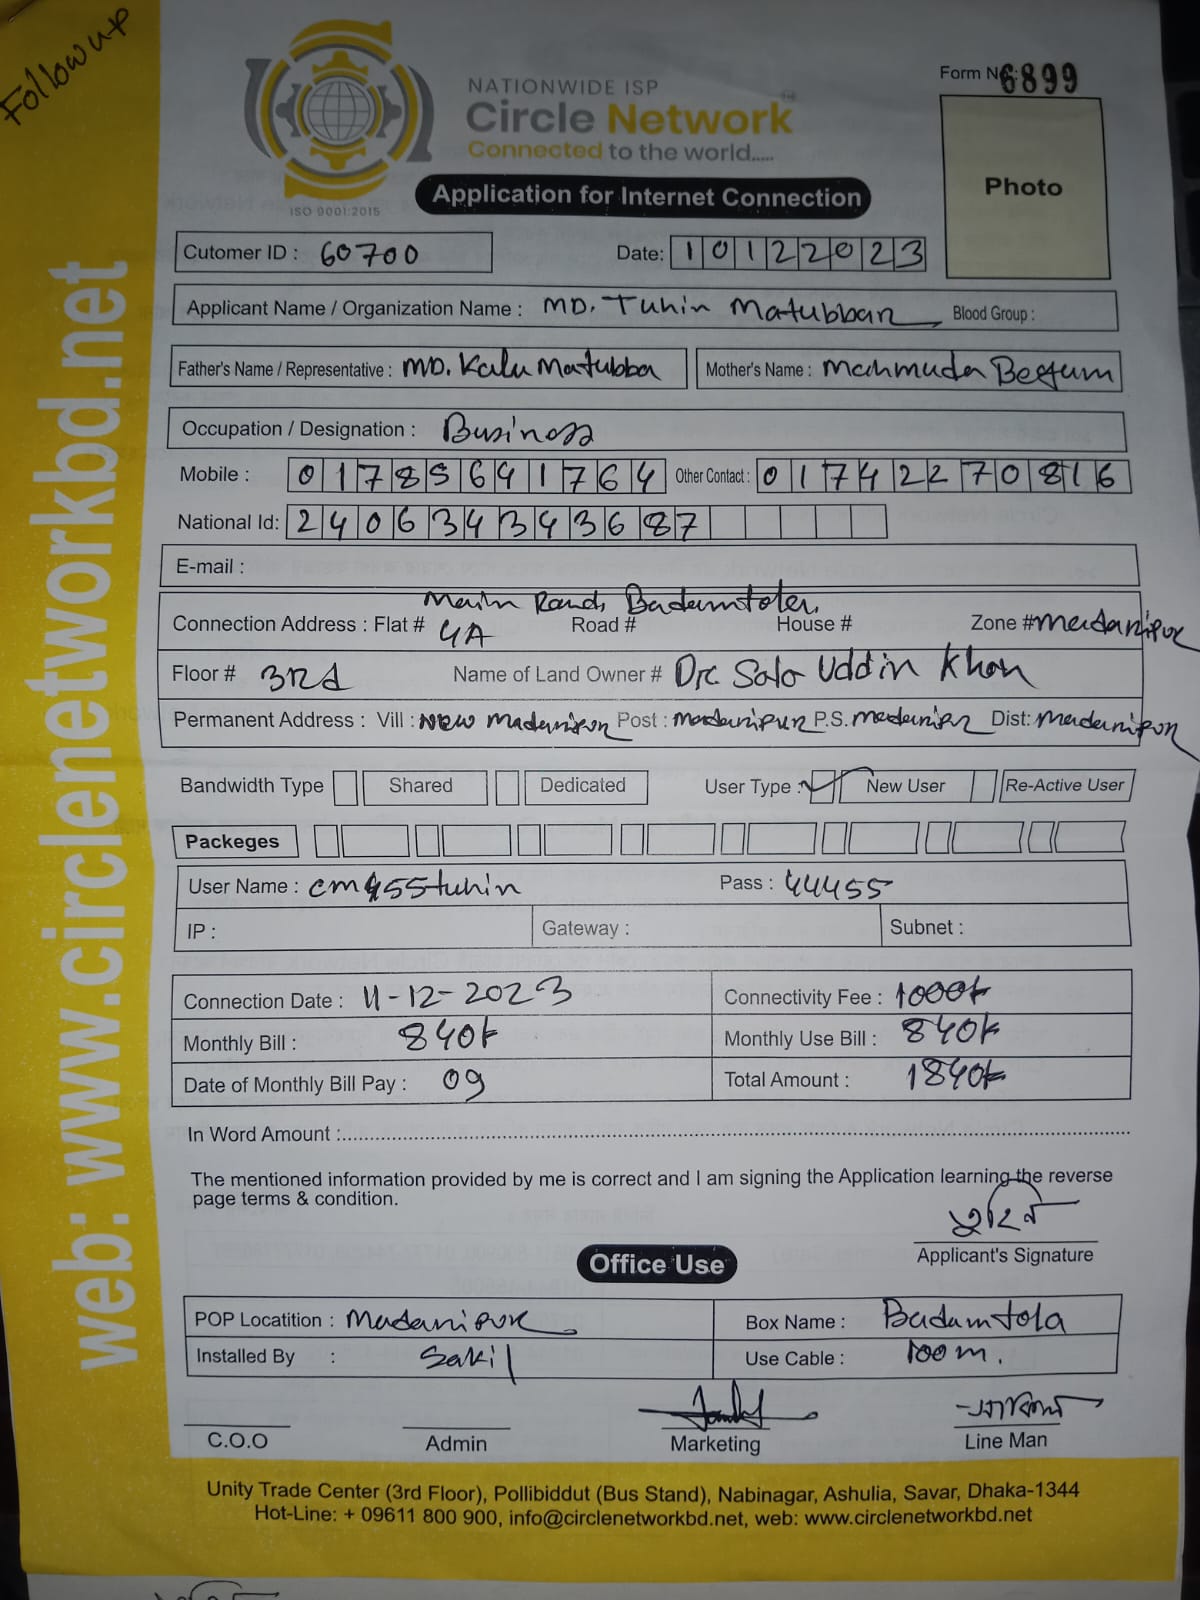 Follow up
NATIONWIDE ISP
Circle Network
Connected to the world.....
ISO 9001:2015
Form No: 6899
Photo
Application for Internet Connection
Cutomer ID : 60700
Date: 10122023
Applicant Name / Organization Name : MD. Tuhin Matubbar Blood Group :
Father's Name / Representative : MD. Kalu Matubba Mother's Name : Mahmuda Begum
Occupation / Designation : Business
Mobile : 01785641764 Other Contact : 01742270816
National Id: 240634343687
E-mail :
Main Road, Badamtola.
Connection Address : Flat # 4A Road # House # Zone # Madaripur
Floor # 3rd Name of Land Owner # Dr. Salo Uddin Khan
Permanent Address : Vill : New Madaripur Post : Madaripur P.S. Madaripur Dist: Madaripur
Bandwidth Type Shared Dedicated User Type : New User Re-Active User
Packeges
User Name : cm455tuhin Pass : 44455
IP : Gateway : Subnet :
Connection Date : 11-12-2023 Connectivity Fee : 1000/-
Monthly Bill : 840/- Monthly Use Bill : 840/-
Date of Monthly Bill Pay : 09 Total Amount : 1840/-
In Word Amount :
The mentioned information provided by me is correct and I am signing the Application learning the reverse
page terms & condition.
তুহিন
Applicant's Signature
Office Use
POP Locatition : Madaripur Box Name : Badamtola
Installed By : Sakil Use Cable : 100m.
C.O.O Admin Marketing Line Man
Unity Trade Center (3rd Floor), Pollibiddut (Bus Stand), Nabinagar, Ashulia, Savar, Dhaka-1344
Hot-Line: + 09611 800 900, info@circlenetworkbd.net, web: www.circlenetworkbd.net
web: www.circlenetworkbd.net